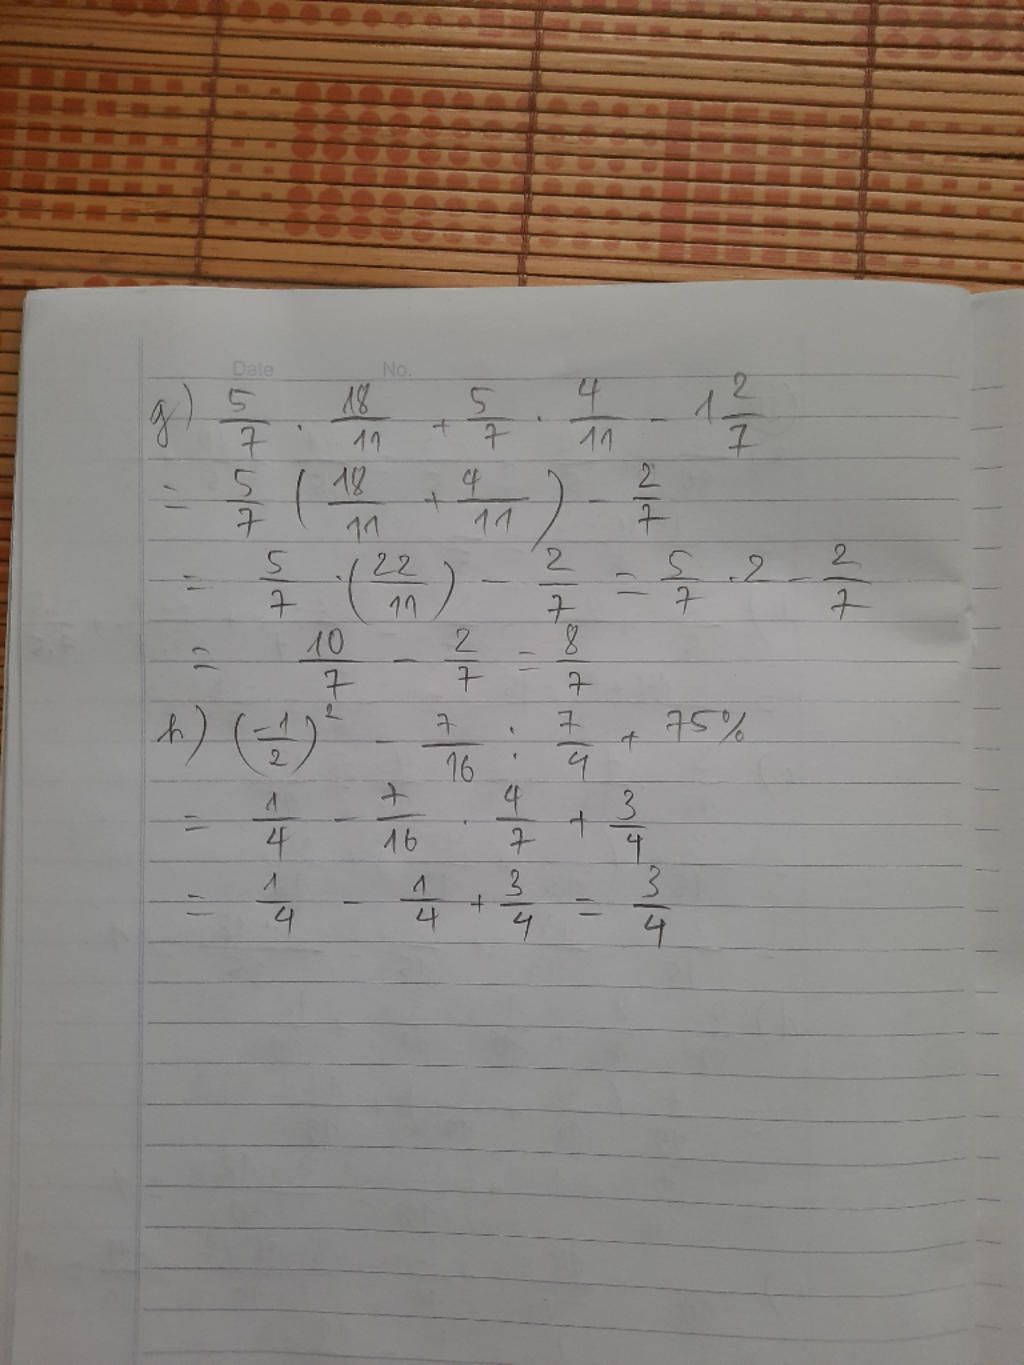 Date No.
g) 5/7 . 18/11 + 5/7 . 4/11 - 1 2/7
= 5/7 (18/11 + 4/11) - 2/7
= 5/7 . (22/11) - 2/7 = 5/7 . 2 - 2/7
= 10/7 - 2/7 = 8/7
h) (-1/2)² - 7/16 : 7/4 + 75%
= 1/4 - 7/16 . 4/7 + 3/4
= 1/4 - 1/4 + 3/4 = 3/4